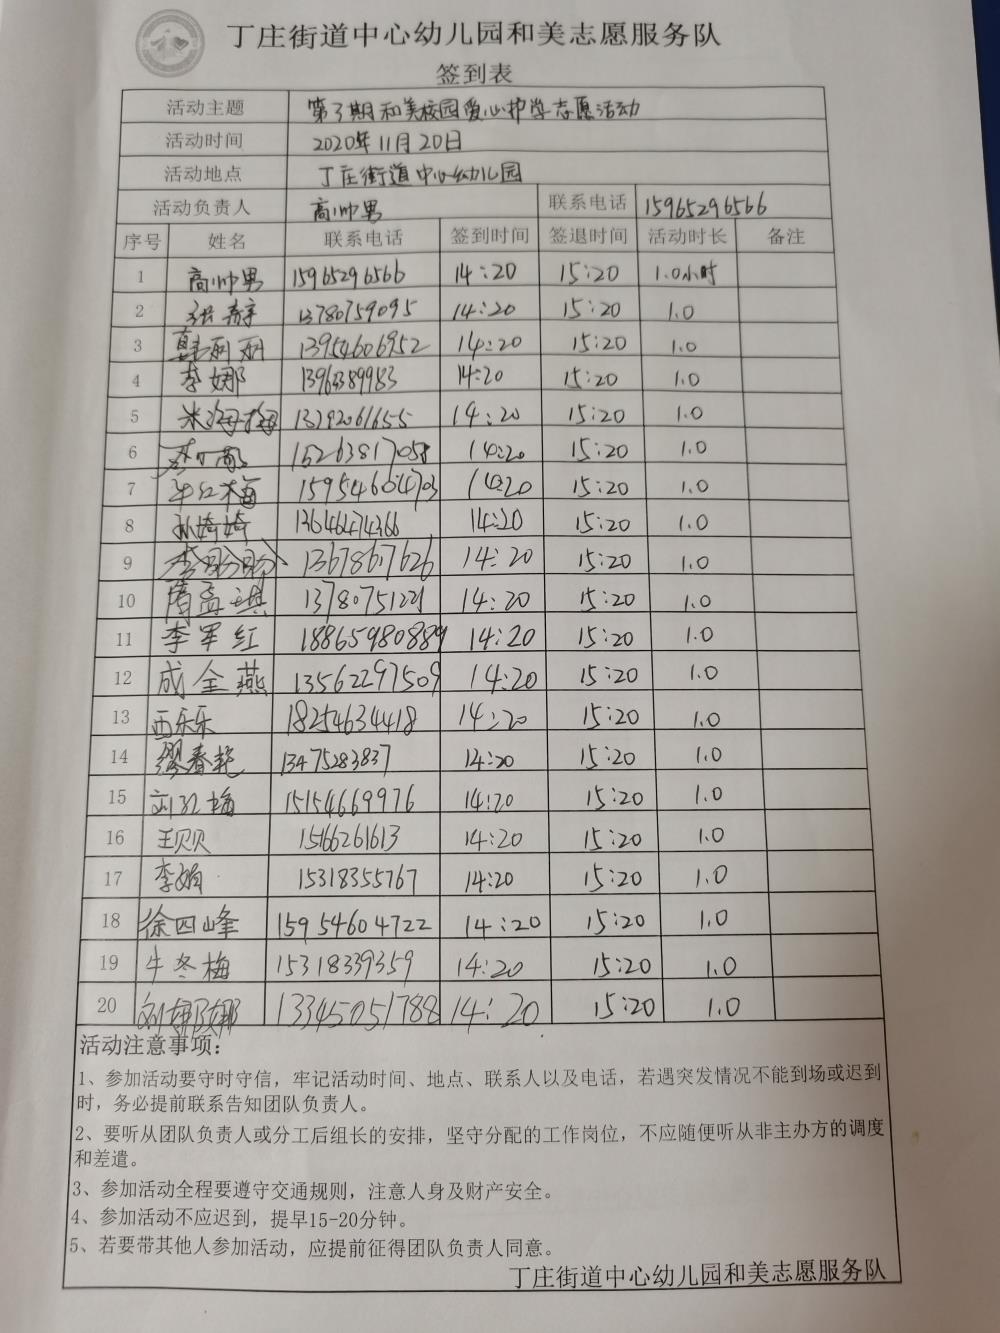 丁庄街道中心幼儿园和美志愿服务队
签到表
活动主题 第3期和美校园爱心护学志愿活动
活动时间 2020年11月20日
活动地点 丁庄街道中心幼儿园
活动负责人 高帅男 联系电话 15965296566
序号 姓名 联系电话 签到时间 签退时间 活动时长 备注
1 高帅男 15965296566 14:20 15:20 1.0小时
2 13780759095 14:20 15:20 1.0
3 韩丽丽 13954606952 14:20 15:20 1.0
4 李娜 13963389983 14:20 15:20 1.0
5 米海梅 13292061655 14:20 15:20 1.0
6 14:20 15:20 1.0
7 牛红梅 15954604703 14:20 15:20 1.0
8 孙婷婷 13646474366 14:20 15:20 1.0
9 李盼盼 13678617626 14:20 15:20 1.0
10 隋孟琪 13780751221 14:20 15:20 1.0
11 李军红 18865980889 14:20 15:20 1.0
12 成全燕 13562297509 14:20 15:20 1.0
13 西乐乐 18254634418 14:20 15:20 1.0
14 缪春艳 13475283837 14:20 15:20 1.0
15 刘红梅 15154669976 14:20 15:20 1.0
16 王贝贝 15166261613 14:20 15:20 1.0
17 李娟 15318355767 14:20 15:20 1.0
18 徐四峰 15954604722 14:20 15:20 1.0
19 牛冬梅 15318339359 14:20 15:20 1.0
20 刘娜娜 13345051788 14:20 15:20 1.0
活动注意事项：
1、参加活动要守时守信，牢记活动时间、地点、联系人以及电话，若遇突发情况不能到场或迟到
时，务必提前联系告知团队负责人。
2、要听从团队负责人或分工后组长的安排，坚守分配的工作岗位，不应随便听从非主办方的调度
和差遣。
3、参加活动全程要遵守交通规则，注意人身及财产安全。
4、参加活动不应迟到，提早15-20分钟。
5、若要带其他人参加活动，应提前征得团队负责人同意。
丁庄街道中心幼儿园和美志愿服务队